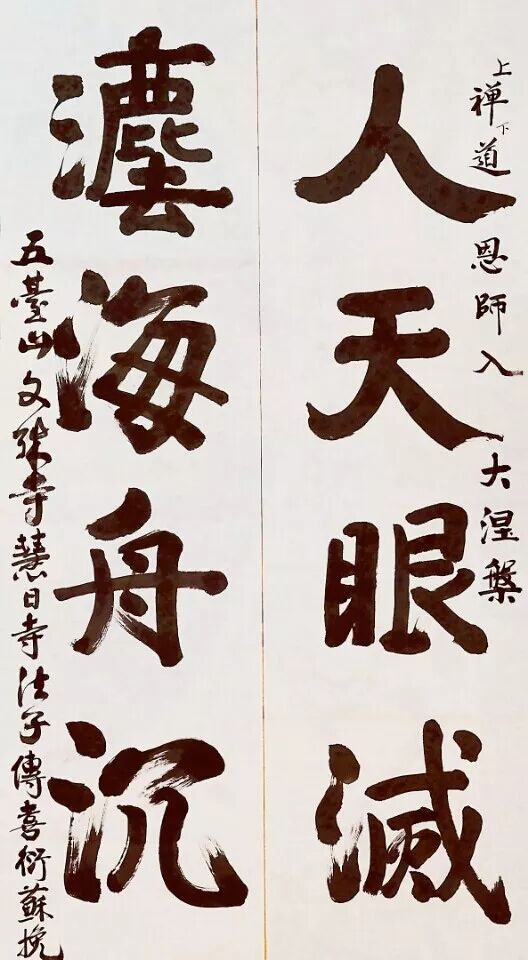 上禪下道恩師入大涅槃
人天眼滅
灋海舟沉
五臺山文殊寺慧日寺法子傳喜衍蘇挽